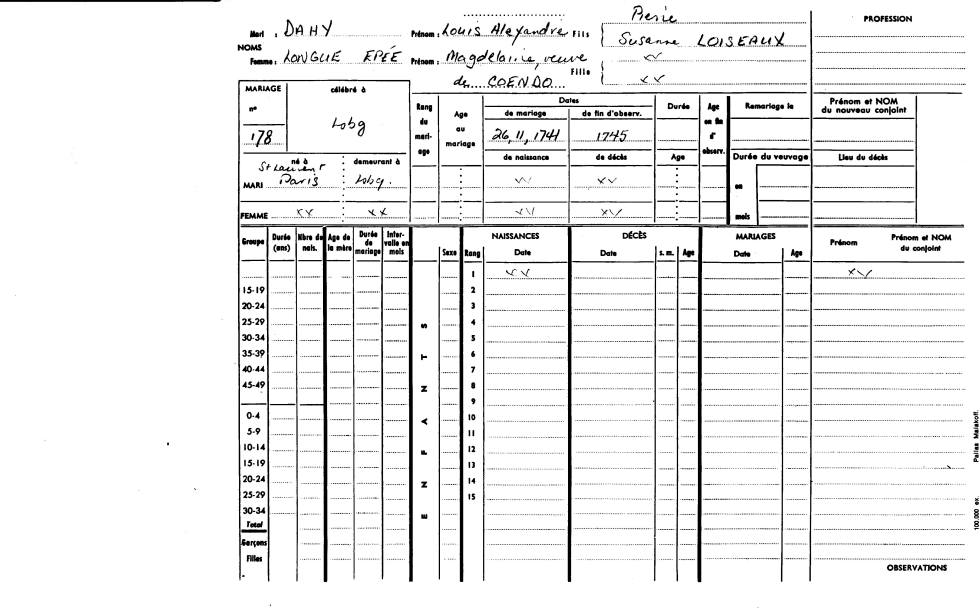 PROFESSION
Mari : DAHY Prénom : Louis Alexandre Fils Susanne LOISEAUX
NOMS
Femme : LONGUE EPÉE Prénom : Magdelaine, veuve
de COENDO Fille
MARIAGE célébré à
n° Lobg
178
Rang du mari-age
Age au mariage
Dates
de mariage de fin d'observ.
26, 11, 1741 1745
de naissance de décès
Durée
Age
Age en fin d' observ.
Remariage le
Durée du veuvage
en
mois
Prénom et NOM du nouveau conjoint
Lieu du décès
né à demeurant à
St Laurent
MARI Paris Lobg.
FEMME
Groupe Durée (ans) Nbre de nais. Age de la mère Durée de mariage Inter-valle en mois
Sexe Rang NAISSANCES Date DÉCÈS Date s. m. Age MARIAGES Date Age Prénom Prénom et NOM du conjoint
1
15-19 2
20-24 3
25-29 4
30-34 5
35-39 6
40-44 7
45-49 8
9
0-4 10
5-9 11
10-14 12
15-19 13
20-24 14
25-29 15
30-34
Total
Garçons
Filles
ENFANTS
OBSERVATIONS
100.000 ex. Pallas Malakoff.